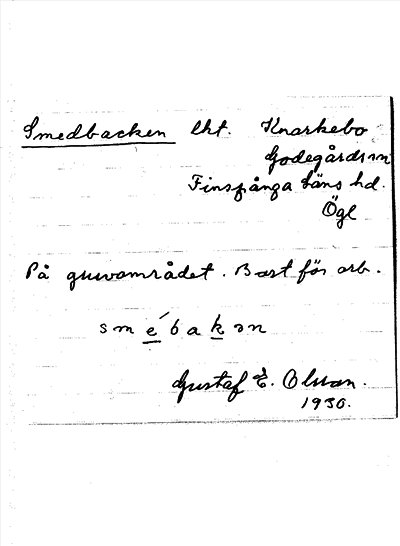 Smedbacken lht. Knarkebo
Godegårds sn
Finspånga läns hd.
Ögl
På gruvområdet. Bost för arb.
s m é b a k ən
Gustaf E. Olsson.
1930.